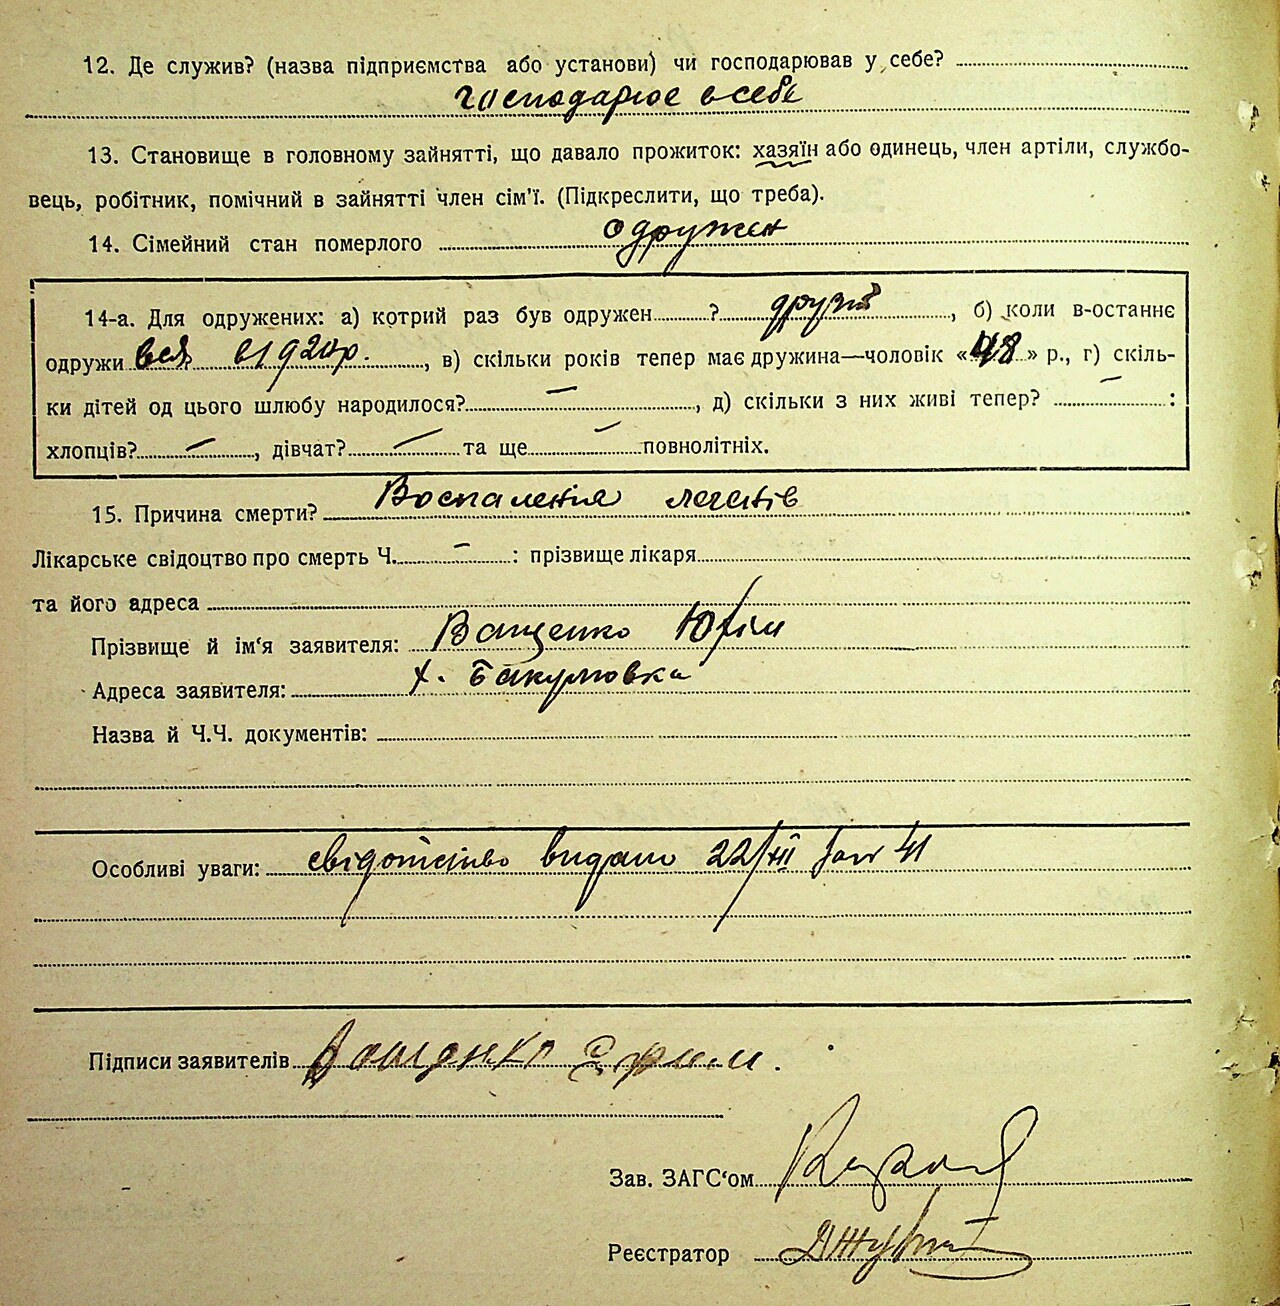 12. Де служив? (назва підприємства або установи) чи господарював у себе?
господарює в себе
13. Становище в головному зайнятті, що давало прожиток: хазяїн або одинець, член артіли, службо-
вець, робітник, помічний в зайнятті член сім'ї. (Підкреслити, що треба).
14. Сімейний стан померлого одружен
14-а. Для одружених: а) котрий раз був одружен ? другий, б) коли в-останнє
одружи вся в 1920 р., в) скільки років тепер має дружина—чоловік «48» р., г) скіль-
ки дітей од цього шлюбу народилося? —, д) скільки з них живі тепер? — :
хлопців? —, дівчат? — та ще — повнолітніх.
15. Причина смерти? Воспаления легенів
Лікарське свідоцтво про смерть Ч. — : прізвище лікаря
та його адреса
Прізвище й ім'я заявителя: Ващенко Юхим
Адреса заявителя: х. Бакумовка
Назва й Ч.Ч. документів:
Особливі уваги: свідотство видано 22/XII 41
Підписи заявителів Ващенко Єфим.
Зав. ЗАГС'ом
Реєстратор